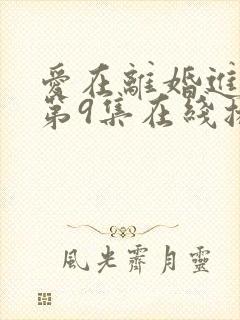 愛在離婚進
第9集在綫
風光霽月靈